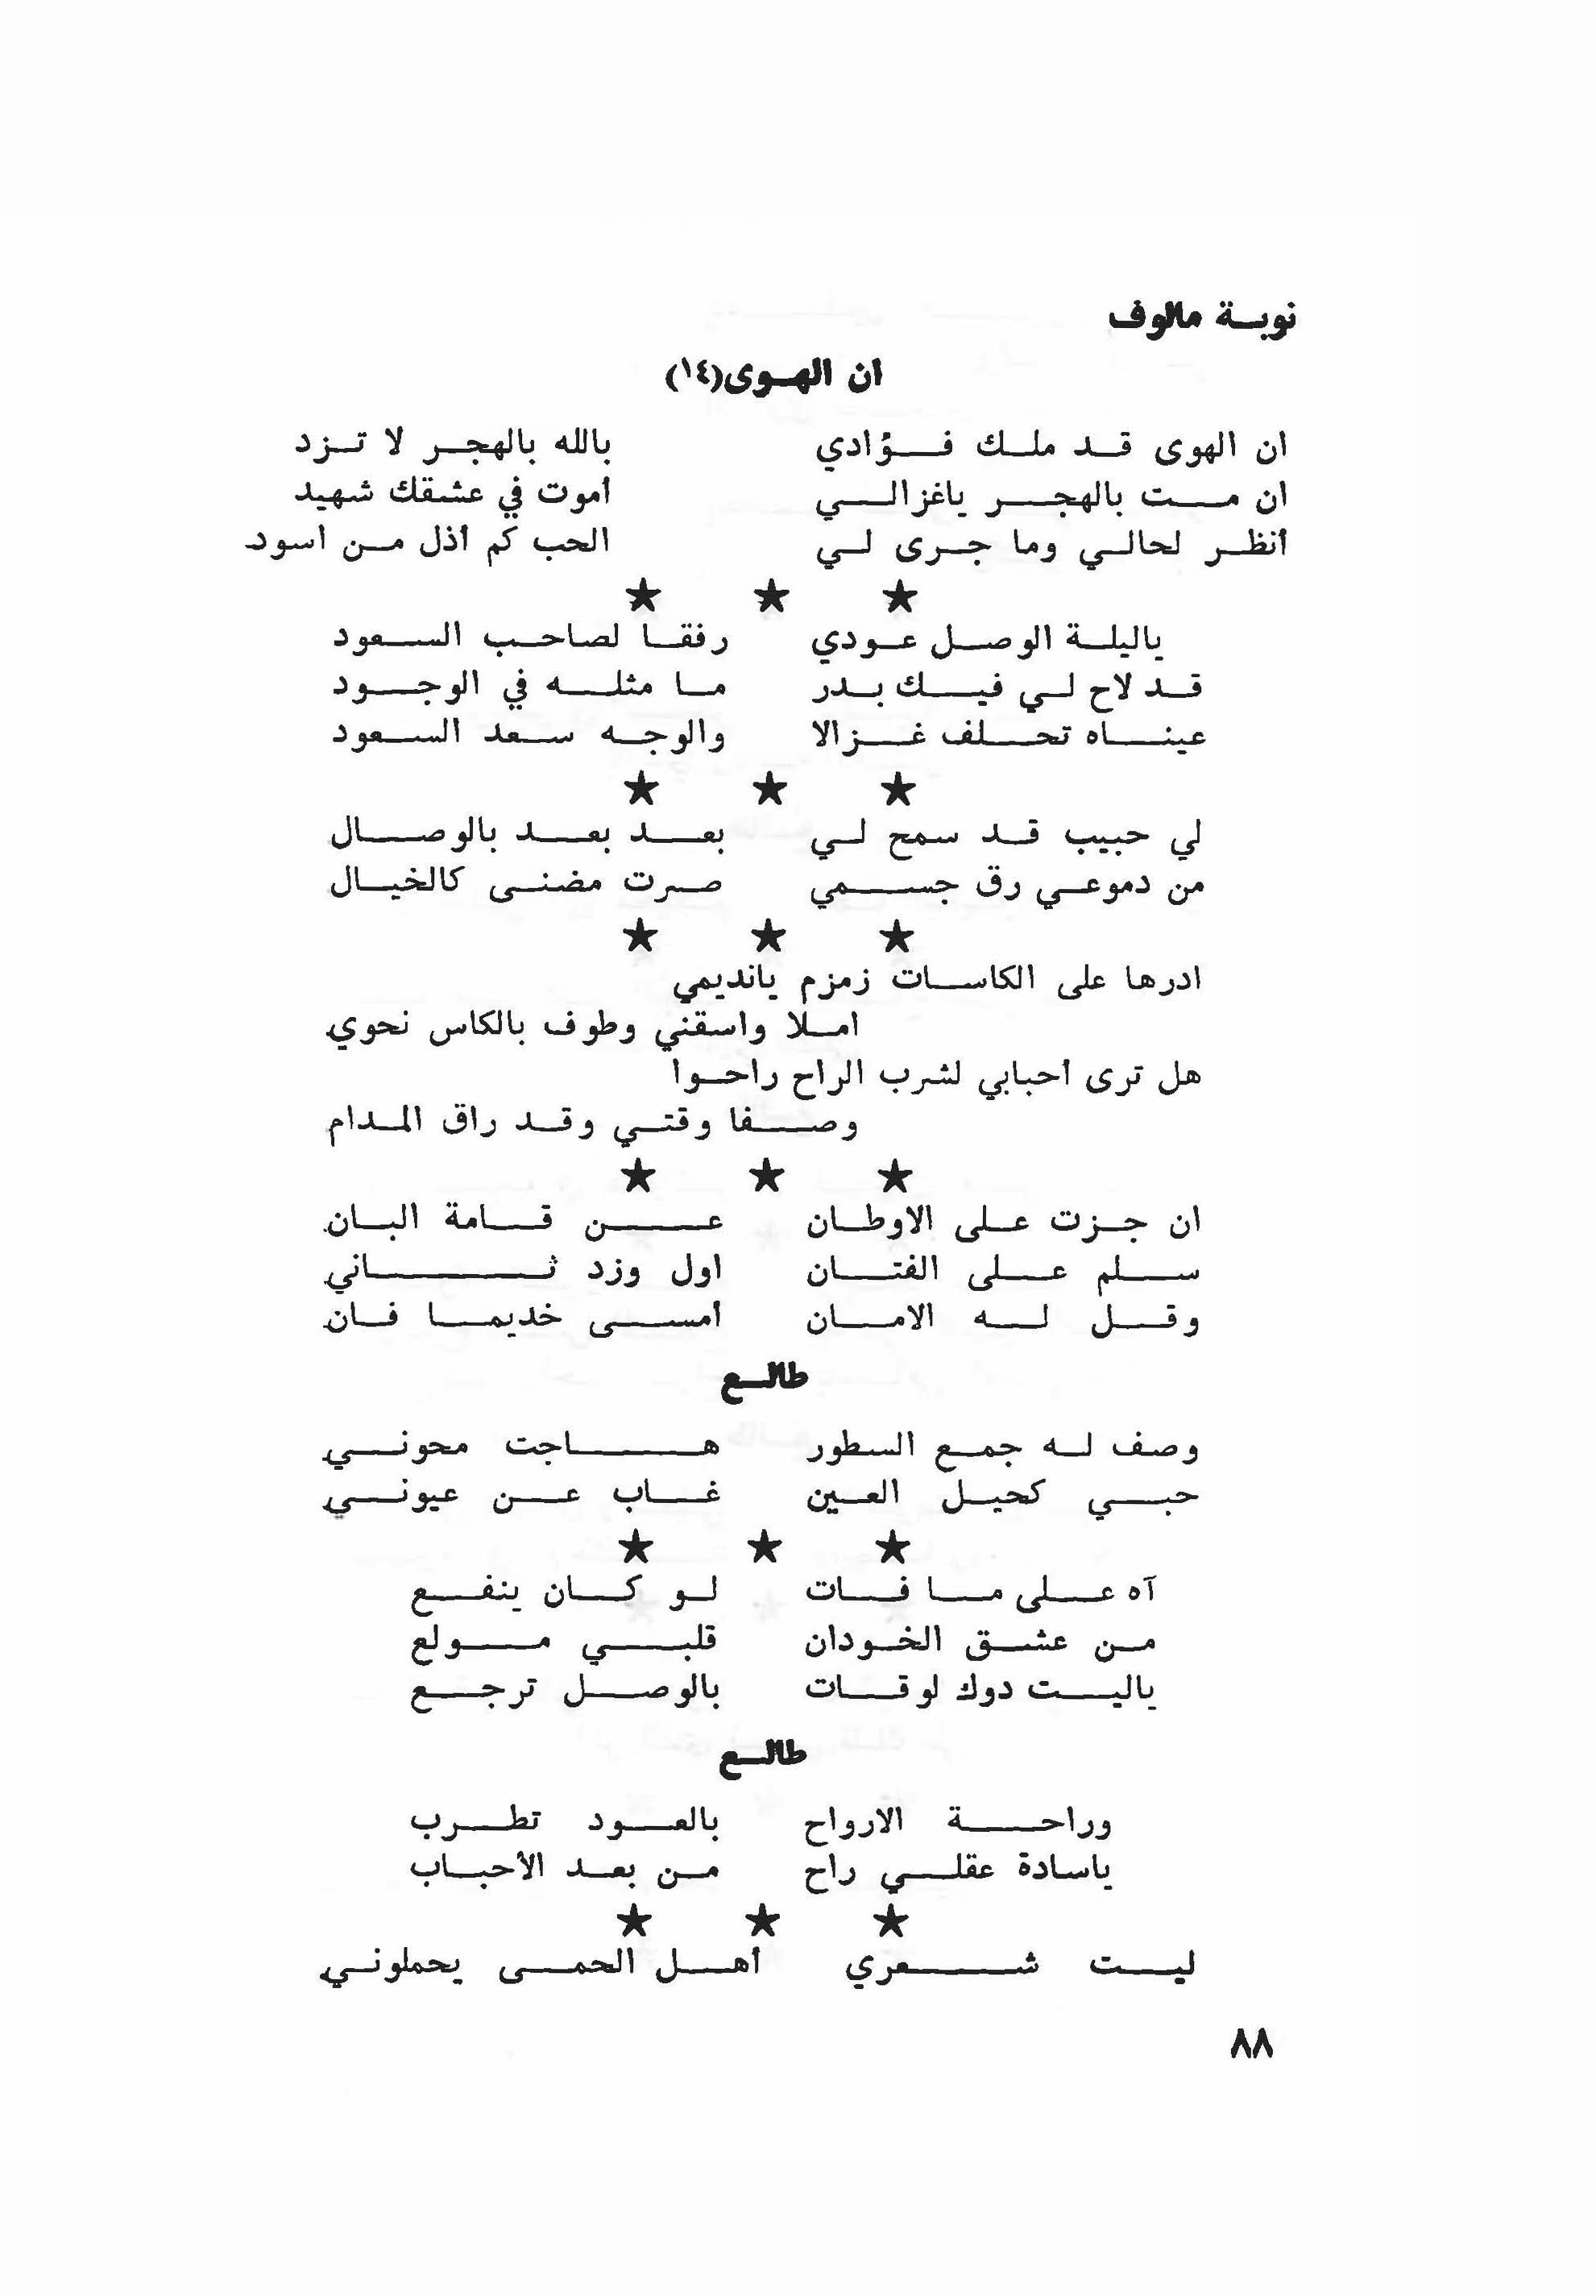 نوبة مالوف
ان الهوى(١٤)
ان الهوى قد ملك فؤادي بالله بالهجر لا تزد
ان مت بالهجر ياغزالي أموت في عشقك شهيد
أنظر لحالي وما جرى لي الحب كم أذل من اسود
★ ★ ★
ياليلة الوصل عودي رفقا لصاحب السعود
قد لاح لي فيك بدر ما مثله في الوجود
عيناه تحلف غزالا والوجه سعد السعود
★ ★ ★
لي حبيب قد سمح لي بعد بعد بالوصال
من دموعي رق جسمي صرت مضنى كالخيال
★ ★ ★
ادرها على الكاسات زمزم يانديمي
املا واسقني وطوف بالكاس نحوي
هل ترى أحبابي لشرب الراح راحوا
وصفا وقتي وقد راق المدام
★ ★ ★
ان جزت على الاوطان عن قامة البان
سلم على الفتان اول وزد ثاني
وقل له الامان أمسى خديما فان
طالع
وصف له جمع السطور هاجت محوني
حبي كحيل العين غاب عن عيوني
★ ★ ★
آه على ما فات لو كان ينفع
من عشق الخودان قلبي مولع
ياليت دوك لوقات بالوصل ترجع
طالع
وراحة الارواح بالعود تطرب
ياسادة عقلي راح من بعد الأحباب
★ ★ ★
ليت شعري أهل الحمى يحملوني
٨٨